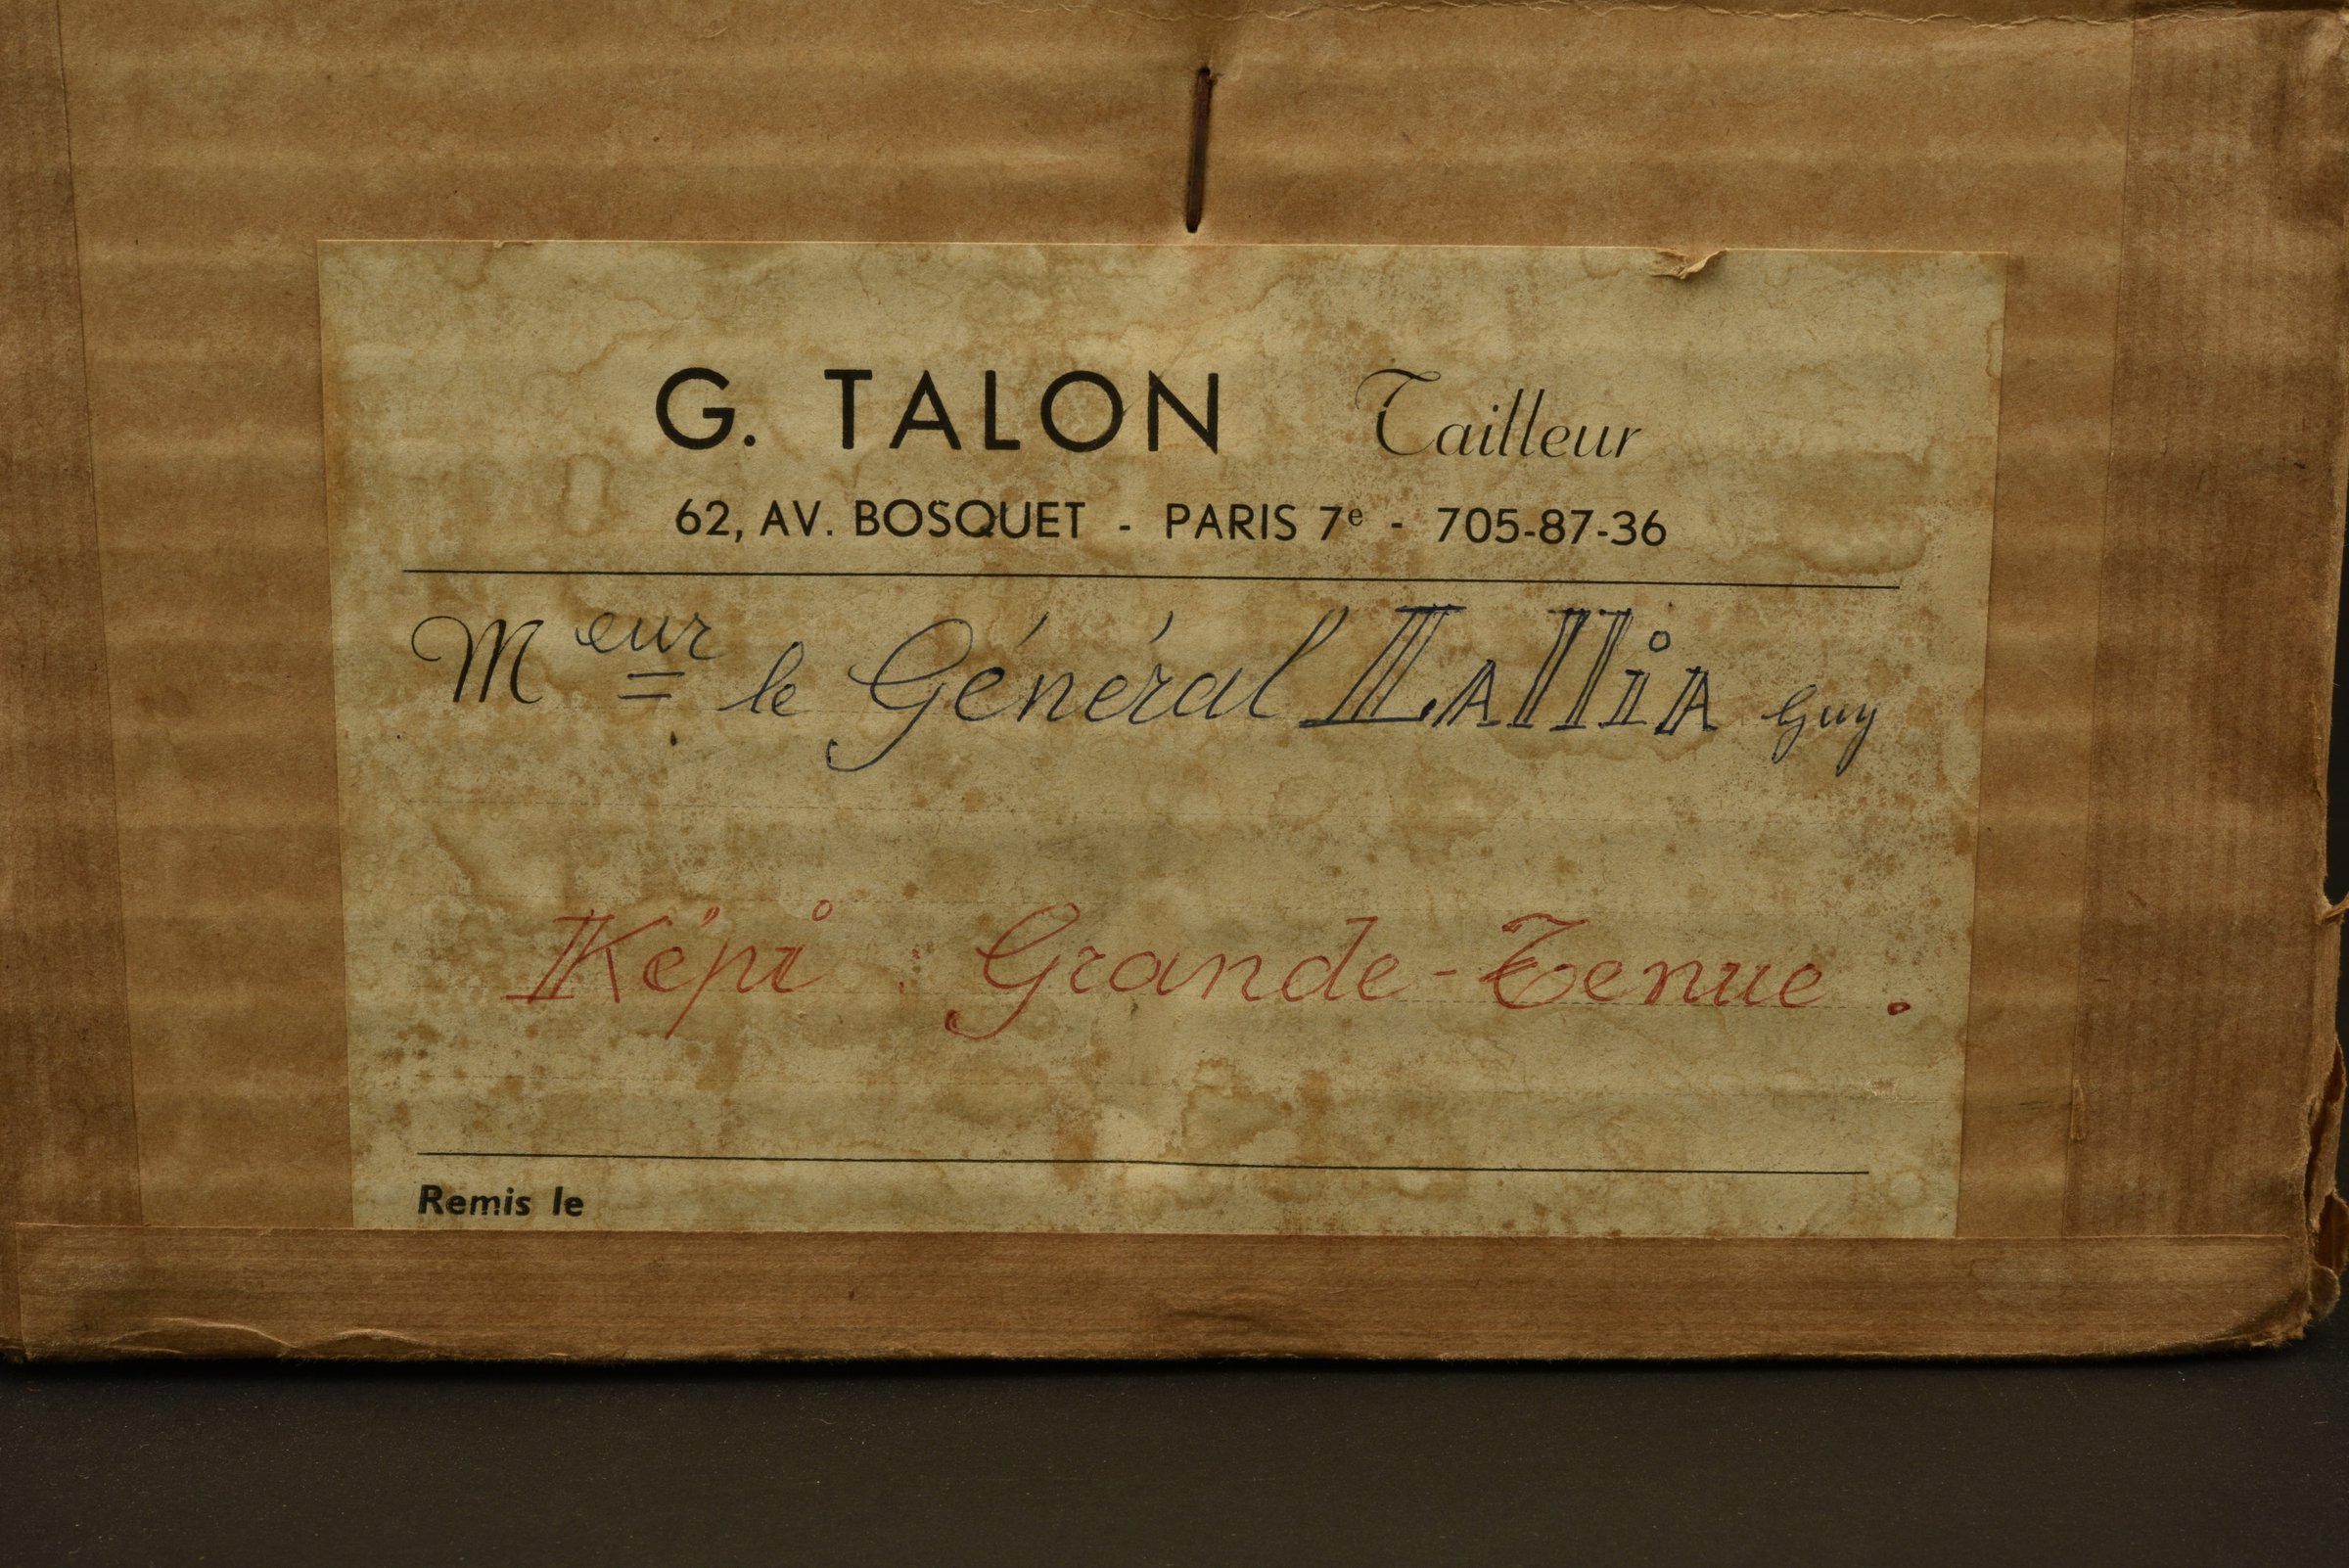 G. TALON Tailleur
62, AV. BOSQUET - PARIS 7e - 705-87-36
Meur le Général LAlliA Guy
Képi Grande-Tenue.
Remis le